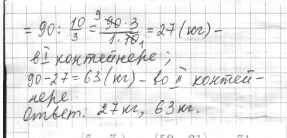 = 90 : 10/3 = 90·3/1·10 = 27 (кг) –
в I контейнере ;
90-27 = 63 (кг) – во II контей-
нере
Ответ: 27кг, 63кг.